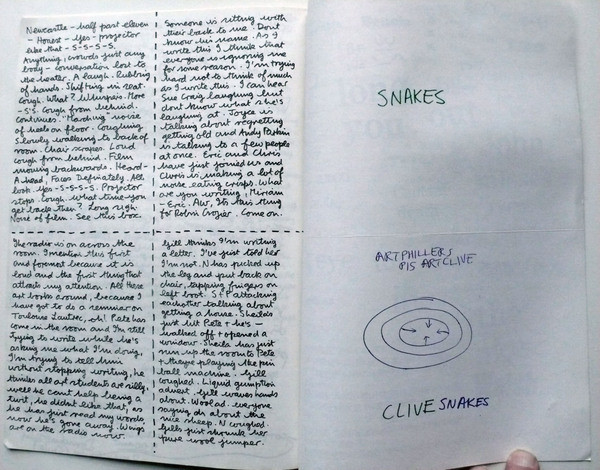 Newcastle - half past eleven
- Honest - Yes - projector
like that - S-S-S-S-S.
Anything, crowds just any
body - conversation lost to
the heater. A laugh. Rubbing
of hands. Shifting in seat.
Cough. What? Whispers. More
- S's. Cough from behind.
Continues. "Marching" noise
of heels on floor. Coughing.
Slowly walking to back of
room. Chair scrapes. Loud
cough from behind. Film
moving backwards. Heard -
A head. Faces. Definately. All
look. Yes - S-S-S-S. Projector
stops. Cough. What time - you
get back then? Long sigh.
Noise of film. See this box.
Someone is sitting with
their back to me. Dont
know his name. As I
write this I think that
everyone is ignoring me
for some reason. I'm trying
hard not to think of much
as I write this. I can hear
Sue Craig laughing but
dont know what she's
laughing at. Joyce is
talking about regretting
getting old and Andy Parkin
is talking to a few people
at once. Eric and Chris
have just joined us and
Chris is making a lot of
noise eating crisps. What
are you writing, Miriam
- Eric. Aw, It's this thing
for Robin Crozier. Come on.
The radio is on across the
room. I mention this first
and foremost because it is
loud and the first thing that
attracts my attention. All these
art books around, because I
have got to do a seminar on
Toulouse Lautrec, oh! Pete has
come in the room and I'm still
trying to write while he's
asking me what I'm doing,
I'm trying to tell him
without stopping writing, he
thinks all art students are silly,
well he cant help being a
twit, he didnt like that, as
he has just read my words,
now he's gone away. Wings
are on the radio now.
Gill thinks I'm writing
a letter. I've just told her
I'm not. N has picked up
the leg and put back on
chair, tapping fingers on
left boot. S + P attacking
eachother talking about
getting a house. Sheila's
just hit Pete + he's -
walked off + opened a
window. Sheila has just
run up the room to Pete
+ theyre playing the pin
ball machine. Gill
coughed. Liquid gumption
advert, Gill waves hands
about. Wool ad. everyone
saying ah about the
nice sheep. N coughed.
Gills just shrunk her
pure wool jumper.
SNAKES
ARTPHILLERS
PIS ARTCLIVE
CLIVE SNAKES